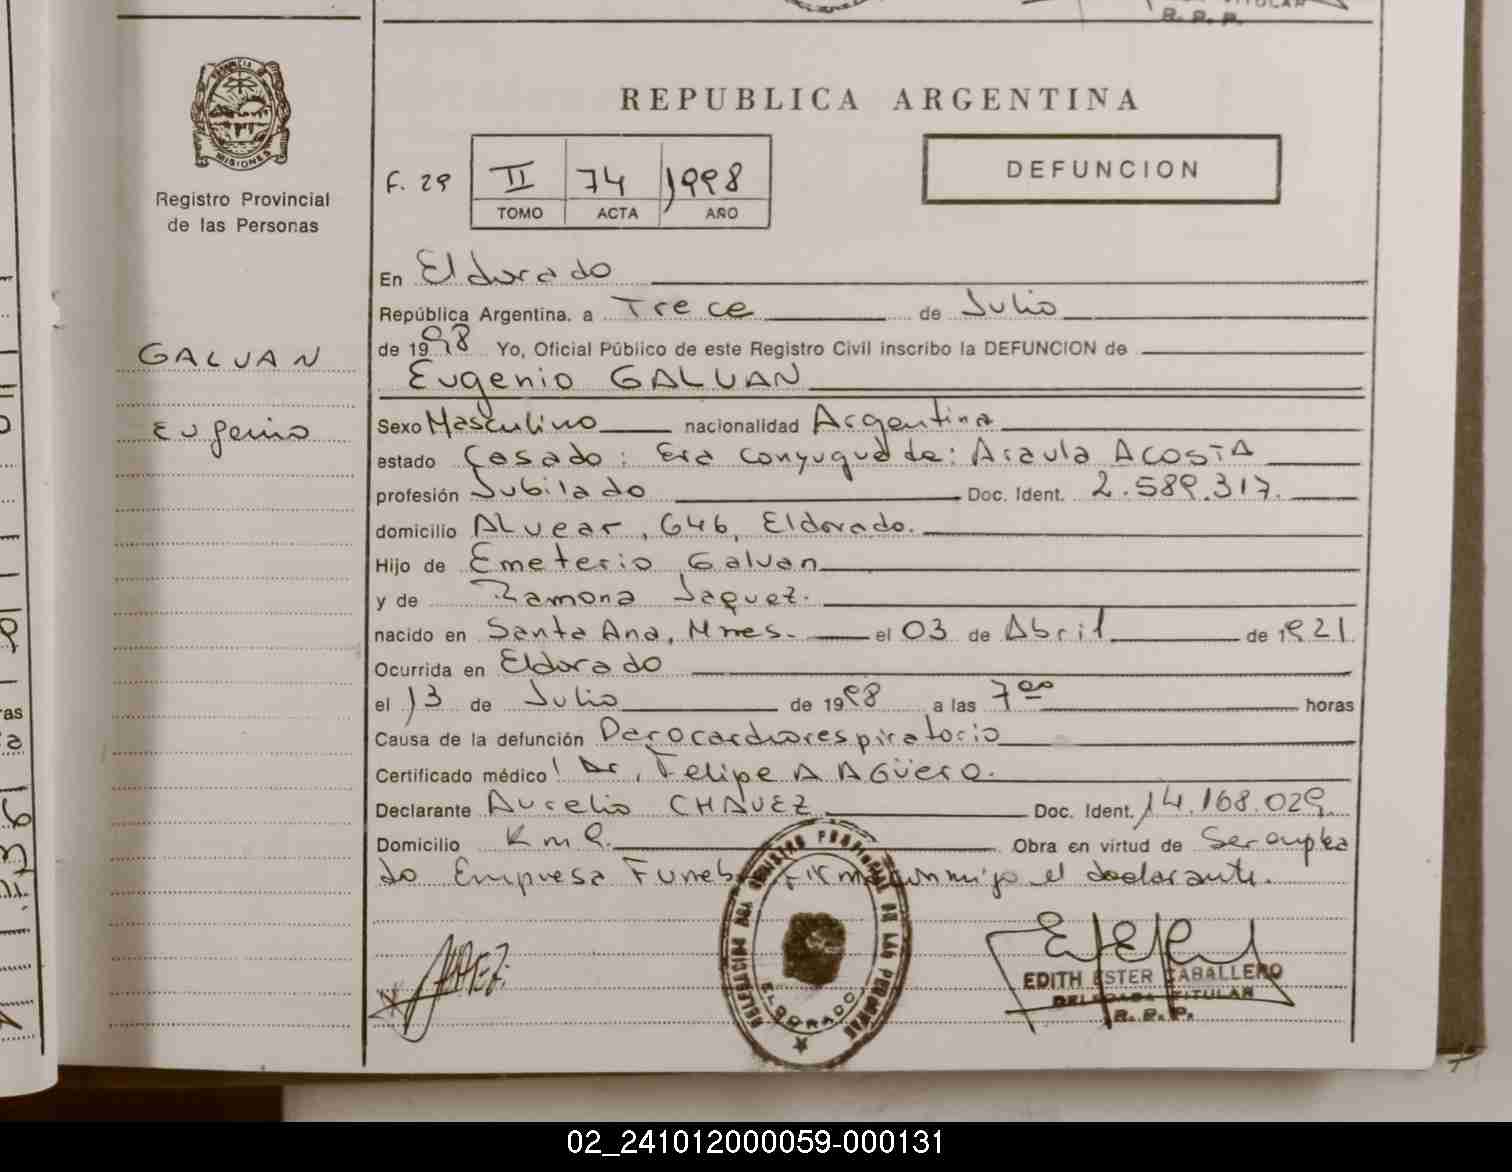 R. P. P.
PROVINCIA
MISIONES
Registro Provincial
de las Personas
REPUBLICA ARGENTINA
DEFUNCION
F. 29
II 74 1998
TOMO ACTA AÑO
GALVAN
Eugenio
En Eldorado
República Argentina, a Trece de Julio
de 1998 Yo, Oficial Público de este Registro Civil inscribo la DEFUNCION de
Eugenio GALVAN
Sexo Masculino nacionalidad Argentina
estado Casado: Era conyugue de: Acaula ACOSTA
profesión Jubilado Doc. Ident. 2.589.317.
domicilio ALvear, 646, Eldorado.
Hijo de Emeterio Galvan
y de Ramona Jaquez.
nacido en Santa Ana, Mnes. el 03 de Abril de 1921
Ocurrida en Eldorado
el 13 de Julio de 1998 a las 7 00 horas
Causa de la defunción Parocardiorespiratorio
Certificado médico Dr. Felipe A AGüero.
Declarante Aurelio CHAVEZ Doc. Ident. 14.168.029
Domicilio Km 9. Obra en virtud de Ser emplea
do Empresa Funeb. Firma conmigo el declarante.
DELEGACION REGISTRO PROVINCIAL DE LAS PERSONAS
ELDORADO
EDITH ESTER CABALLERO
DELEGADA TITULAR
R. P. P.
02_241012000059-000131